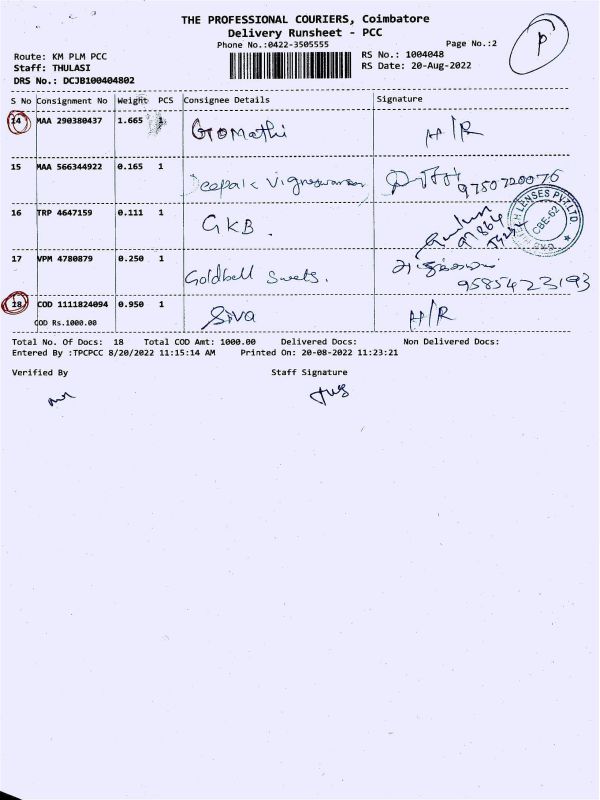 THE PROFESSIONAL COURIERS, Coimbatore
Delivery Runsheet - PCC
Phone No.:0422-3505555
Page No.:2
P
Route: KM PLM PCC
Staff: THULASI
DRS No.: DCJB100404802
RS No.: 1004048
RS Date: 20-Aug-2022
S No Consignment No Weight PCS Consignee Details Signature
14 MAA 290380437 1.665 1 Gomathi H/R
15 MAA 566344922 0.165 1 Deepak Vigneswaran 9750720076
16 TRP 4647159 0.111 1 GKB.
LENSES PVT.LTD.
CBE-62
17 VPM 4780879 0.250 1 Goldbell Sweets. 9585423193
18 COD 1111824094 0.950 1 Siva H/R
COD Rs.1000.00
Total No. Of Docs: 18 Total COD Amt: 1000.00 Delivered Docs: Non Delivered Docs:
Entered By :TPCPCC 8/20/2022 11:15:14 AM Printed On: 20-08-2022 11:23:21
Verified By Staff Signature